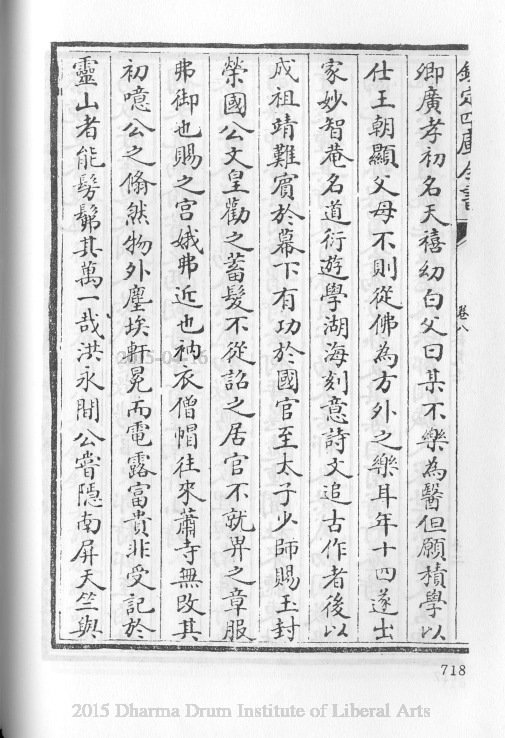 欽定四庫全書
卷八
卿廣孝初名天禧幼白父曰某不樂為醫但願積學以
仕王朝顯父母不則從佛為方外之樂耳年十四遂出
家妙智菴名道衍遊學湖海刻意詩文追古作者後以
成祖靖難賓於幕下有功於國官至太子少師賜玉封
榮國公文皇勸之蓄髮不從詔之居官不就畀之章服
弗御也賜之宫娥弗近也衲衣僧帽往來蕭寺無改其
初噫公之翛然物外塵埃軒冕而電露富貴非受記於
靈山者能髣髴其萬一哉洪永間公嘗隱南屏天竺與
718
2015 Dharma Drum Institute of Liberal Arts